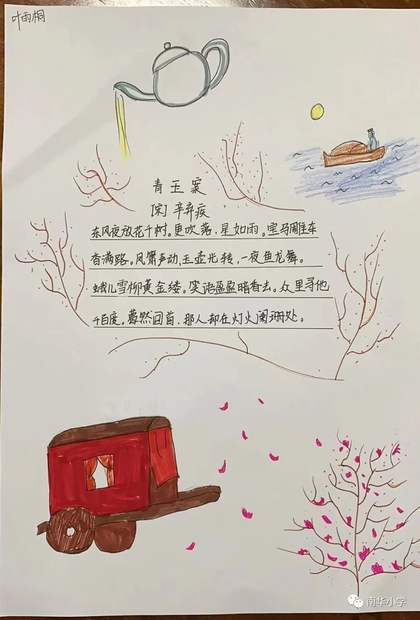 叶雨桐
青玉案
[宋] 辛弃疾
东风夜放花千树。更吹落、星如雨。宝马雕车
香满路。风箫声动,玉壶光转,一夜鱼龙舞。
蛾儿雪柳黄金缕。笑语盈盈暗香去。众里寻他
千百度。蓦然回首、那人却在灯火阑珊处。
南华小学